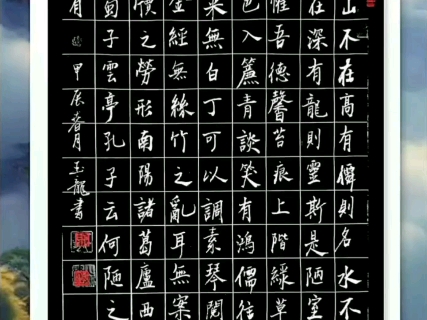 山不在高有僊則名水不
在深有龍則靈斯是陋室
惟吾德馨苔痕上階綠草
色入簾青談笑有鴻儒往
來無白丁可以調素琴閱
金經無絲竹之亂耳無案
牘之勞形南陽諸葛廬西
蜀子雲亭孔子云何陋之
有 甲辰春月玉龍書